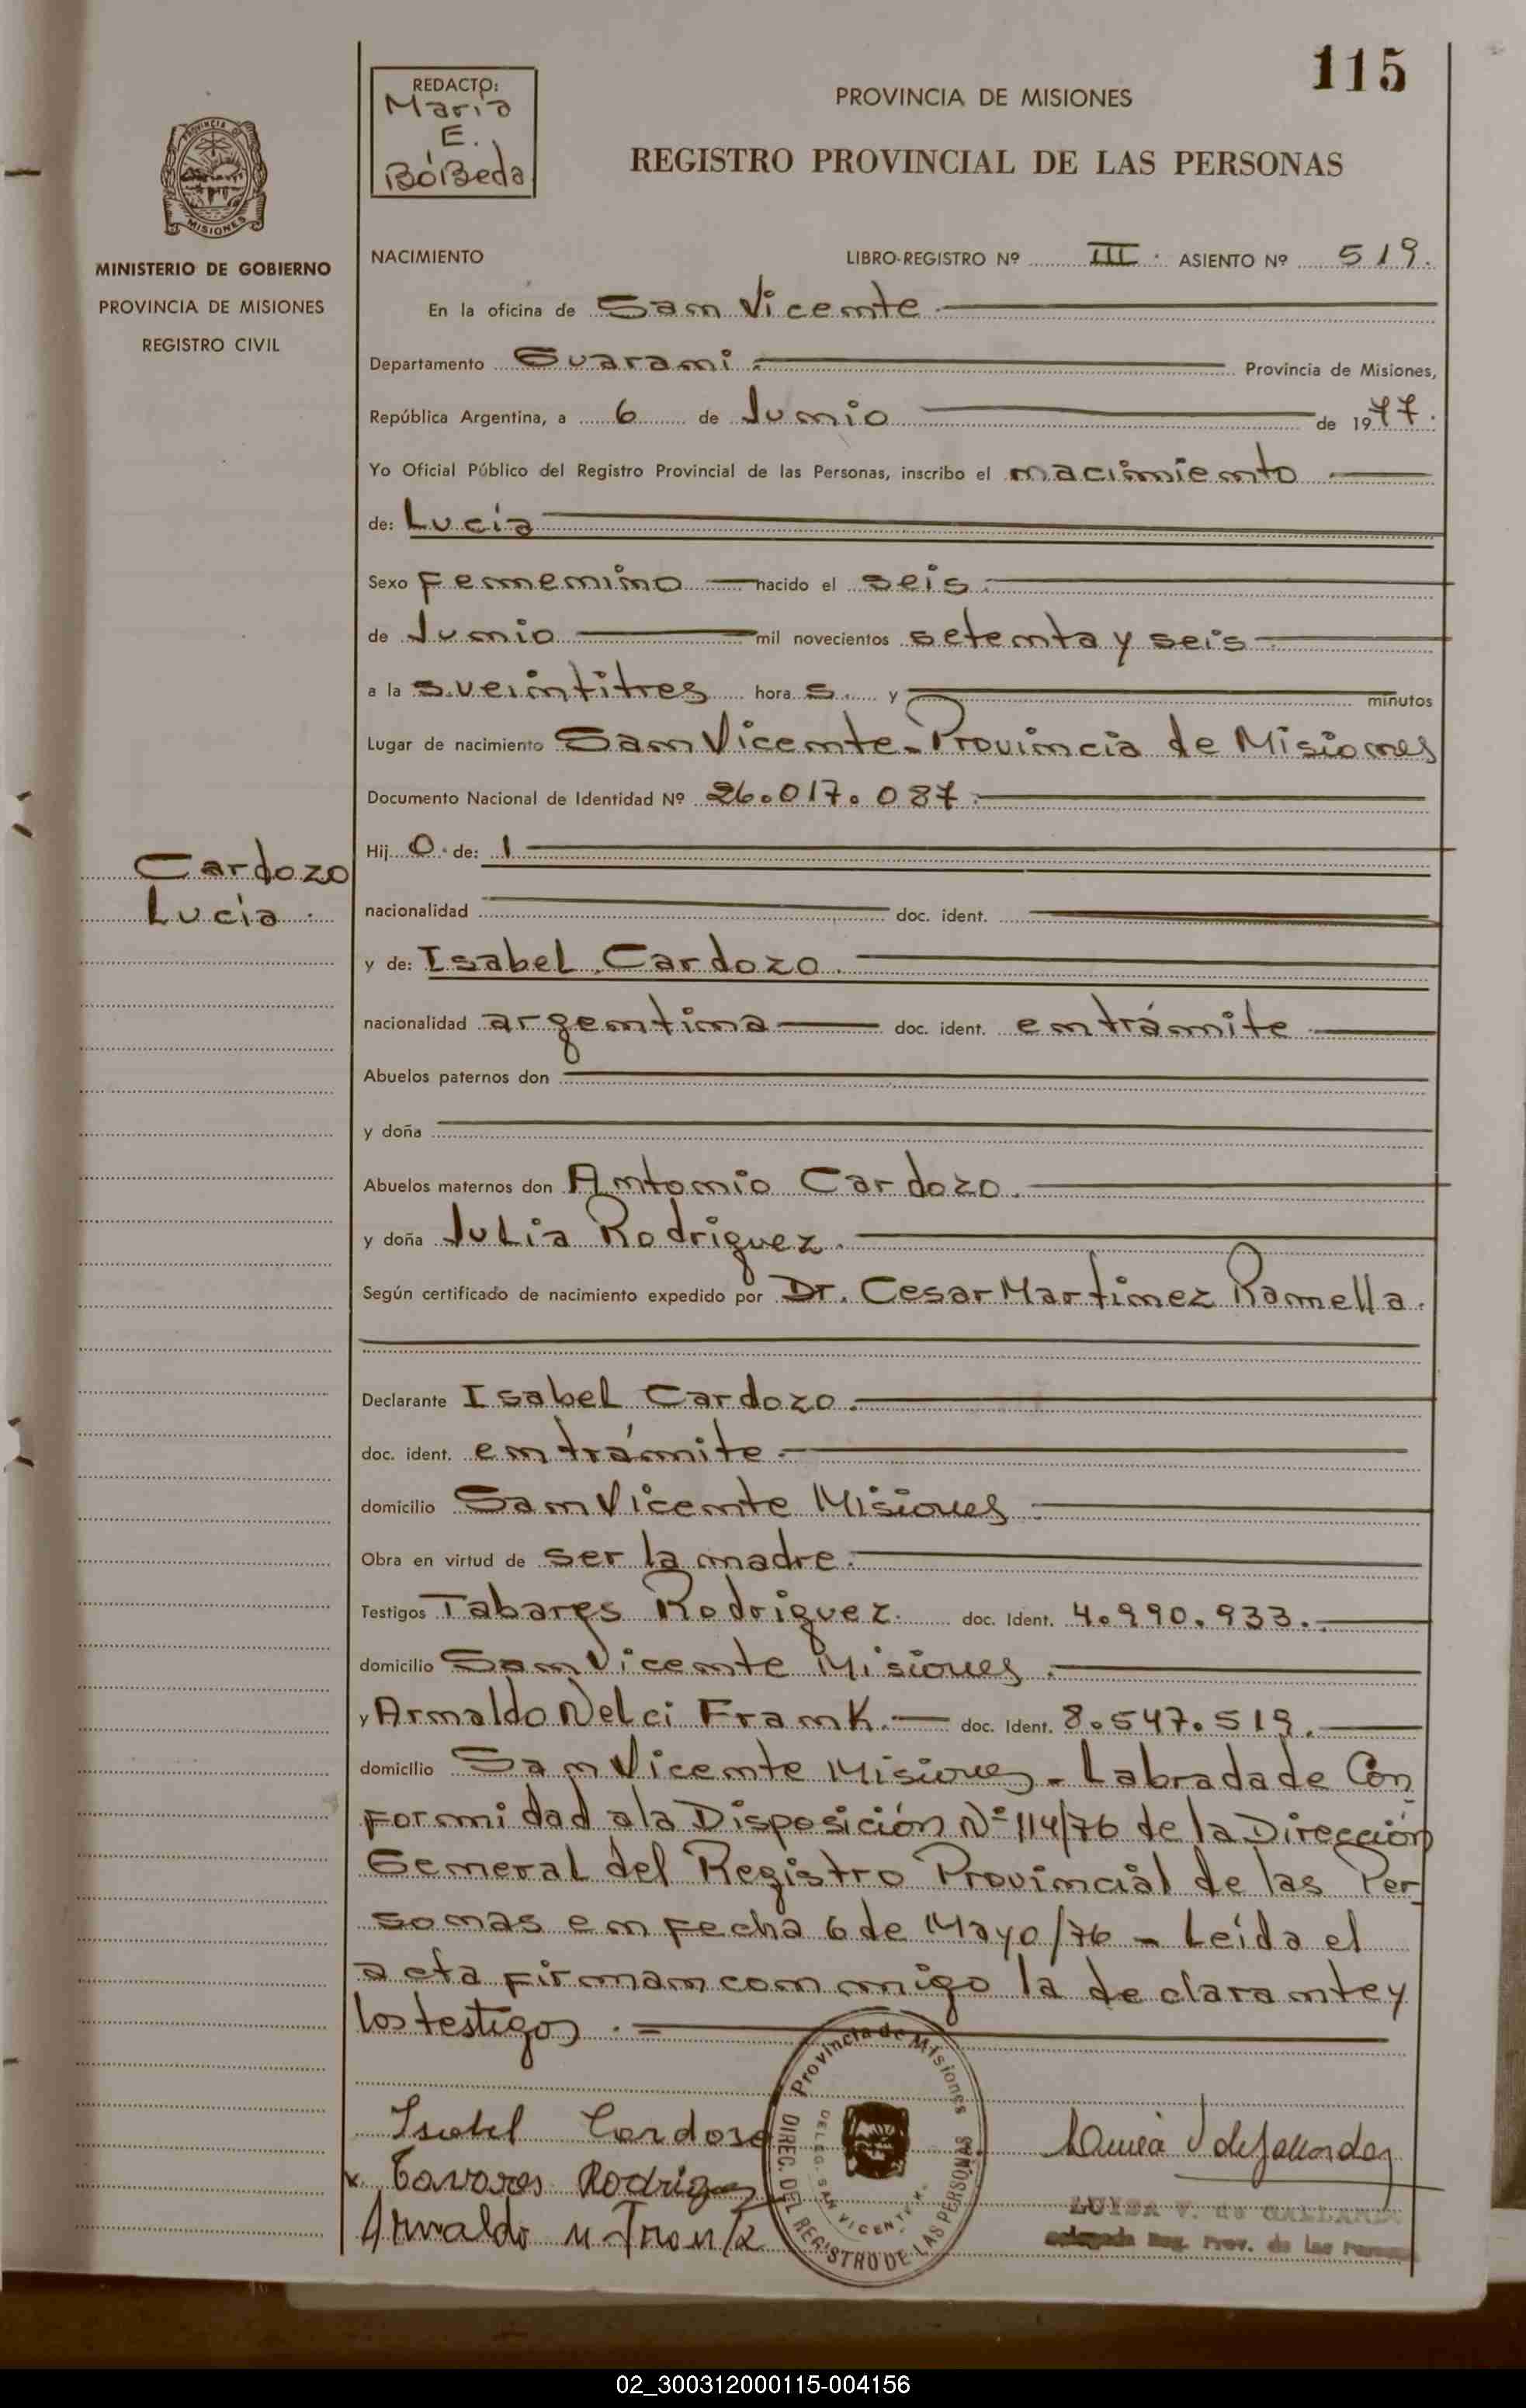 115
REDACTO:
Maria
E.
BóBeda
PROVINCIA DE MISIONES
REGISTRO PROVINCIAL DE LAS PERSONAS
PROVINCIA DE
MISIONES
MINISTERIO DE GOBIERNO
PROVINCIA DE MISIONES
REGISTRO CIVIL
NACIMIENTO LIBRO-REGISTRO Nº III. ASIENTO Nº 519.
En la oficina de San Vicente
Departamento Guarani. Provincia de Misiones,
República Argentina, a 6 de Junio de 1977.
Yo Oficial Público del Registro Provincial de las Personas, inscribo el nacimiento
de: Lucía
Sexo Femenino nacido el seis.
de Junio mil novecientos setenta y seis
a la s veintitres hora s. y minutos
Lugar de nacimiento San Vicente-Provincia de Misiones
Documento Nacional de Identidad Nº 26.017.087.
Hij o. de:
Cardozo
Lucía.
nacionalidad doc. ident.
y de: Isabel Cardozo.
nacionalidad argentina doc. ident. en trámite
Abuelos paternos don
y doña
Abuelos maternos don Antonio Cardozo.
y doña Julia Rodriguez.
Según certificado de nacimiento expedido por Dr. Cesar Martinez Ramella.
Declarante Isabel Cardozo.
doc. ident. en trámite.
domicilio San Vicente Misiones
Obra en virtud de ser la madre.
Testigos Tabares Rodriguez. doc. Ident. 4.990.933.
domicilio San Vicente Misiones.
y Arnaldo Nelci Frank. doc. Ident. 8.547.519.
domicilio San Vicente Misiones - Labrada de Con
formidad a la Disposición Nº 114/76 de la Dirección
General del Registro Provincial de las Per
sonas en fecha 6 de Mayo/76 - Leída el
acta firman conmigo la declarante y
los testigos.
Provincia de Misiones
DIREC. DEL REGISTRO DE LAS PERSONAS
DELEG. SAN VICENTE
Isabel Cardoso
Tavares Rodriguez
Arnaldo N Frank
LUISA V. de
Reg. Prov. de las
02_300312000115-004156